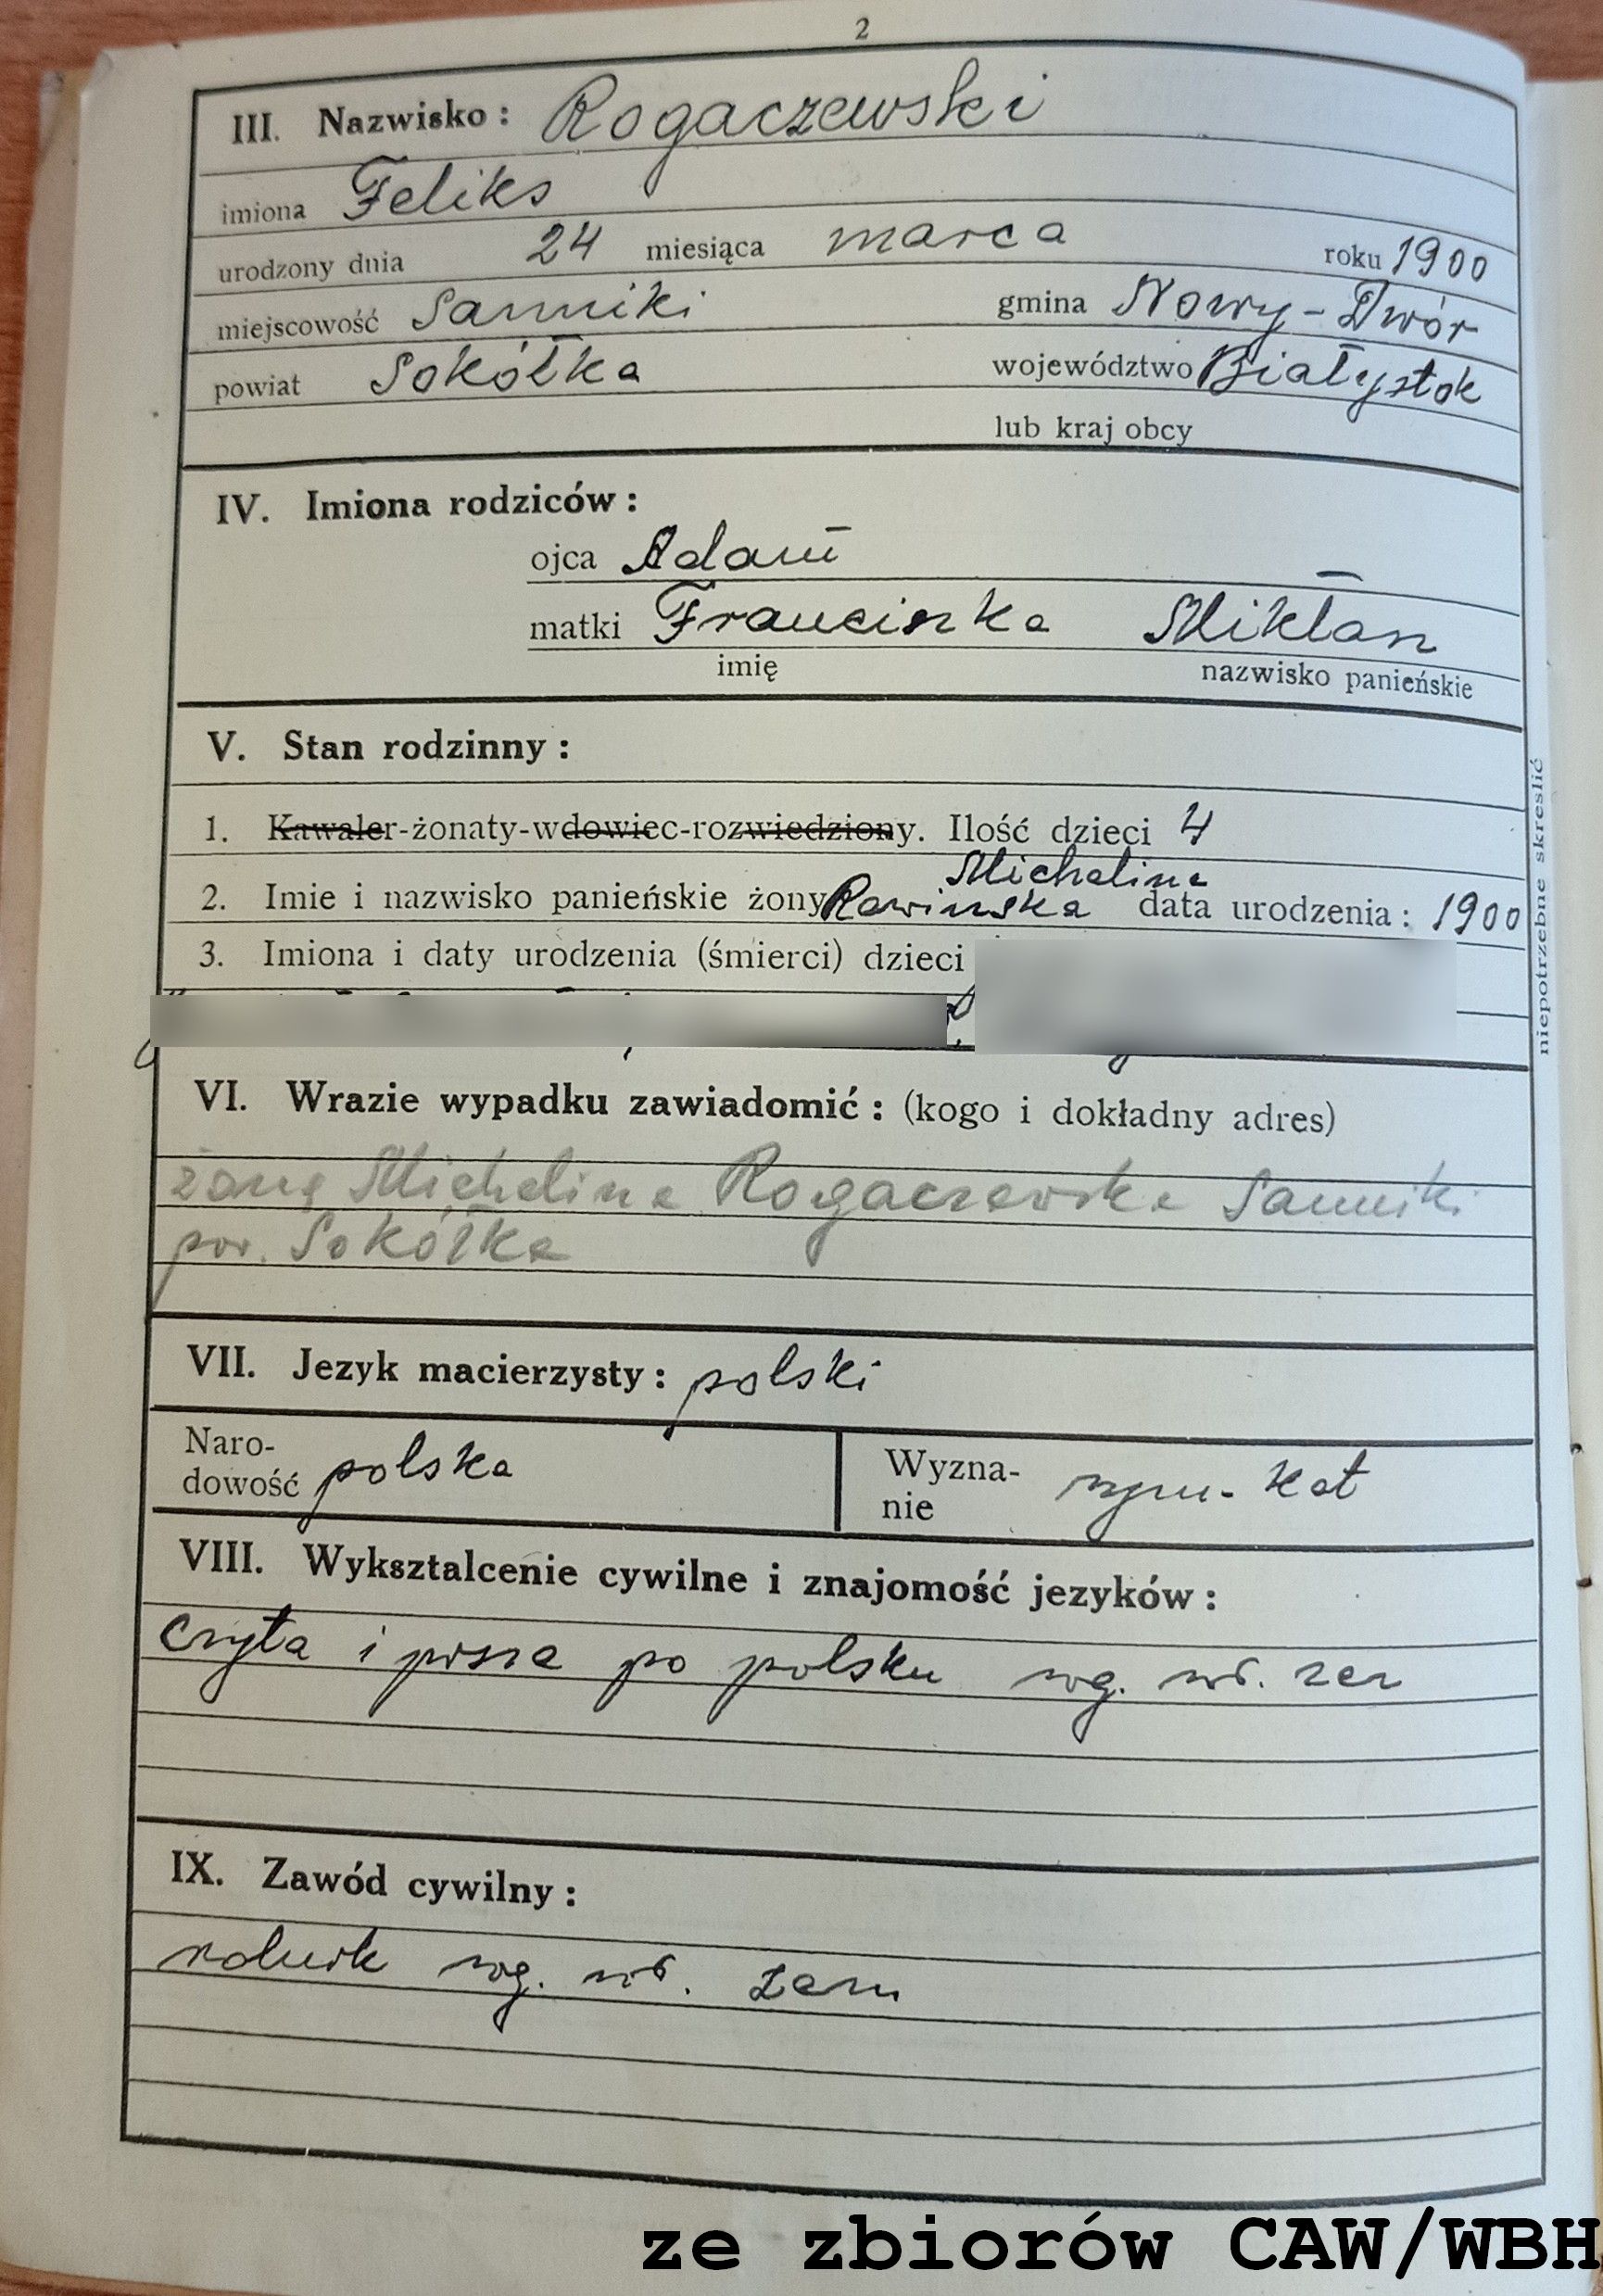 2
III. Nazwisko: Rogaczewski
imiona Feliks
urodzony dnia 24 miesiąca marca roku 1900
miejscowość Sanniki gmina Nowy-Dwór
powiat Sokółka województwo Białystok
lub kraj obcy
IV. Imiona rodziców:
ojca Adam
matki Franciszka Mikłasz
imię nazwisko panieńskie
V. Stan rodzinny:
1. Kawaler-żonaty-wdowiec-rozwiedziony. Ilość dzieci 4
Michalina
2. Imie i nazwisko panieńskie żony data urodzenia: 1900
3. Imiona i daty urodzenia (śmierci) dzieci
niepotrzebne skreslić
VI. Wrazie wypadku zawiadomić: (kogo i dokładny adres)
żona Michalina Rogaczewska Sanniki
pow. Sokółka
VII. Jezyk macierzysty: polski
Naro-
dowość polska
Wyzna-
nie rzym-kat
VIII. Wyksztalcenie cywilne i znajomość jezyków:
czyta i pisze po polsku wg. wł. zez
IX. Zawód cywilny:
rolnik wg. wł. zezn
ze zbiorów CAW/WBH